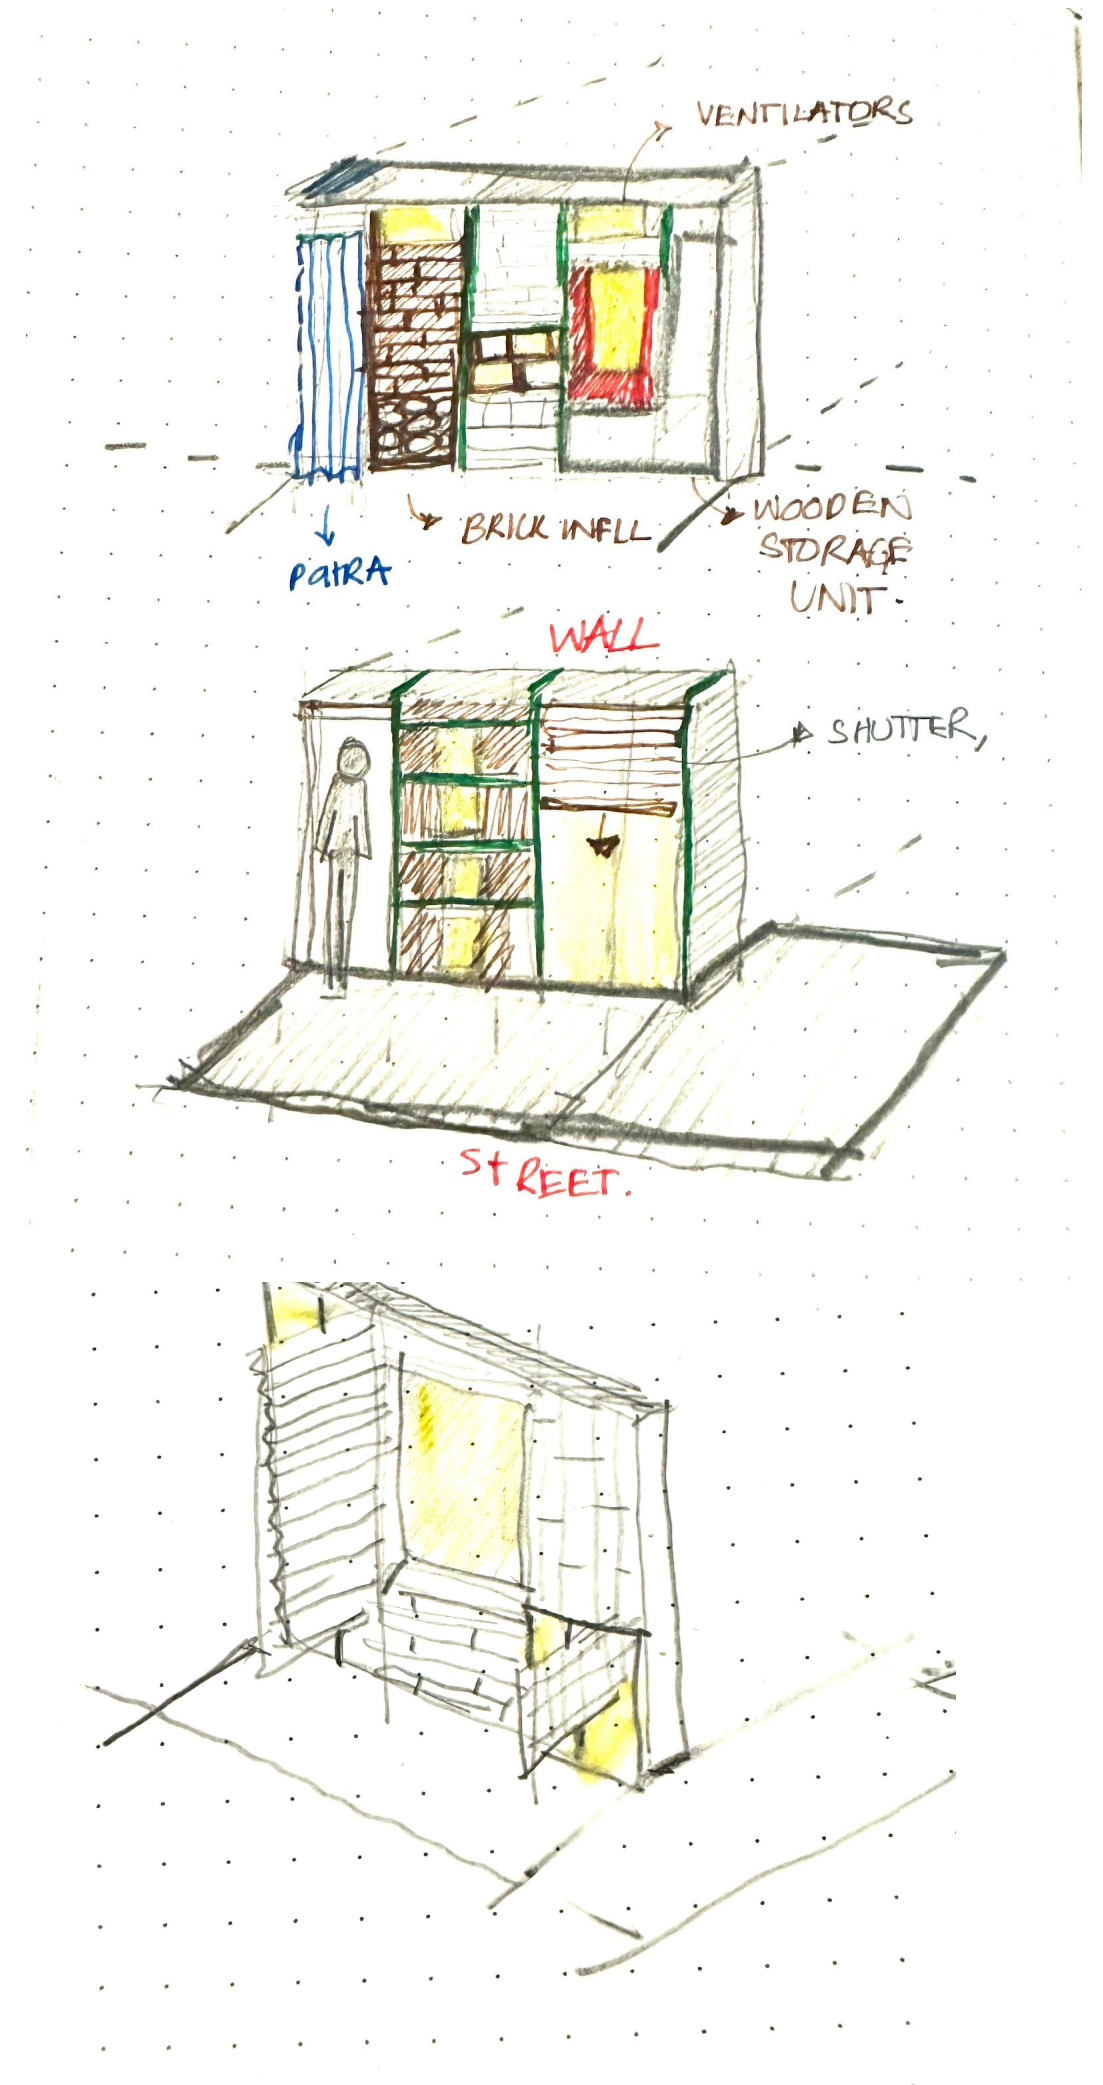 VENTILATORS
BRICK INFLL
WOODEN
STORAGE
UNIT.
PatRA
WALL
SHUTTER,
StREET.